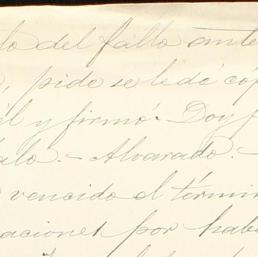 to del fallo ante
, pide se le dé cóp
il y firmó. Doy f
alo.- Alvarado.-
vencido el térmi
aciones por hab